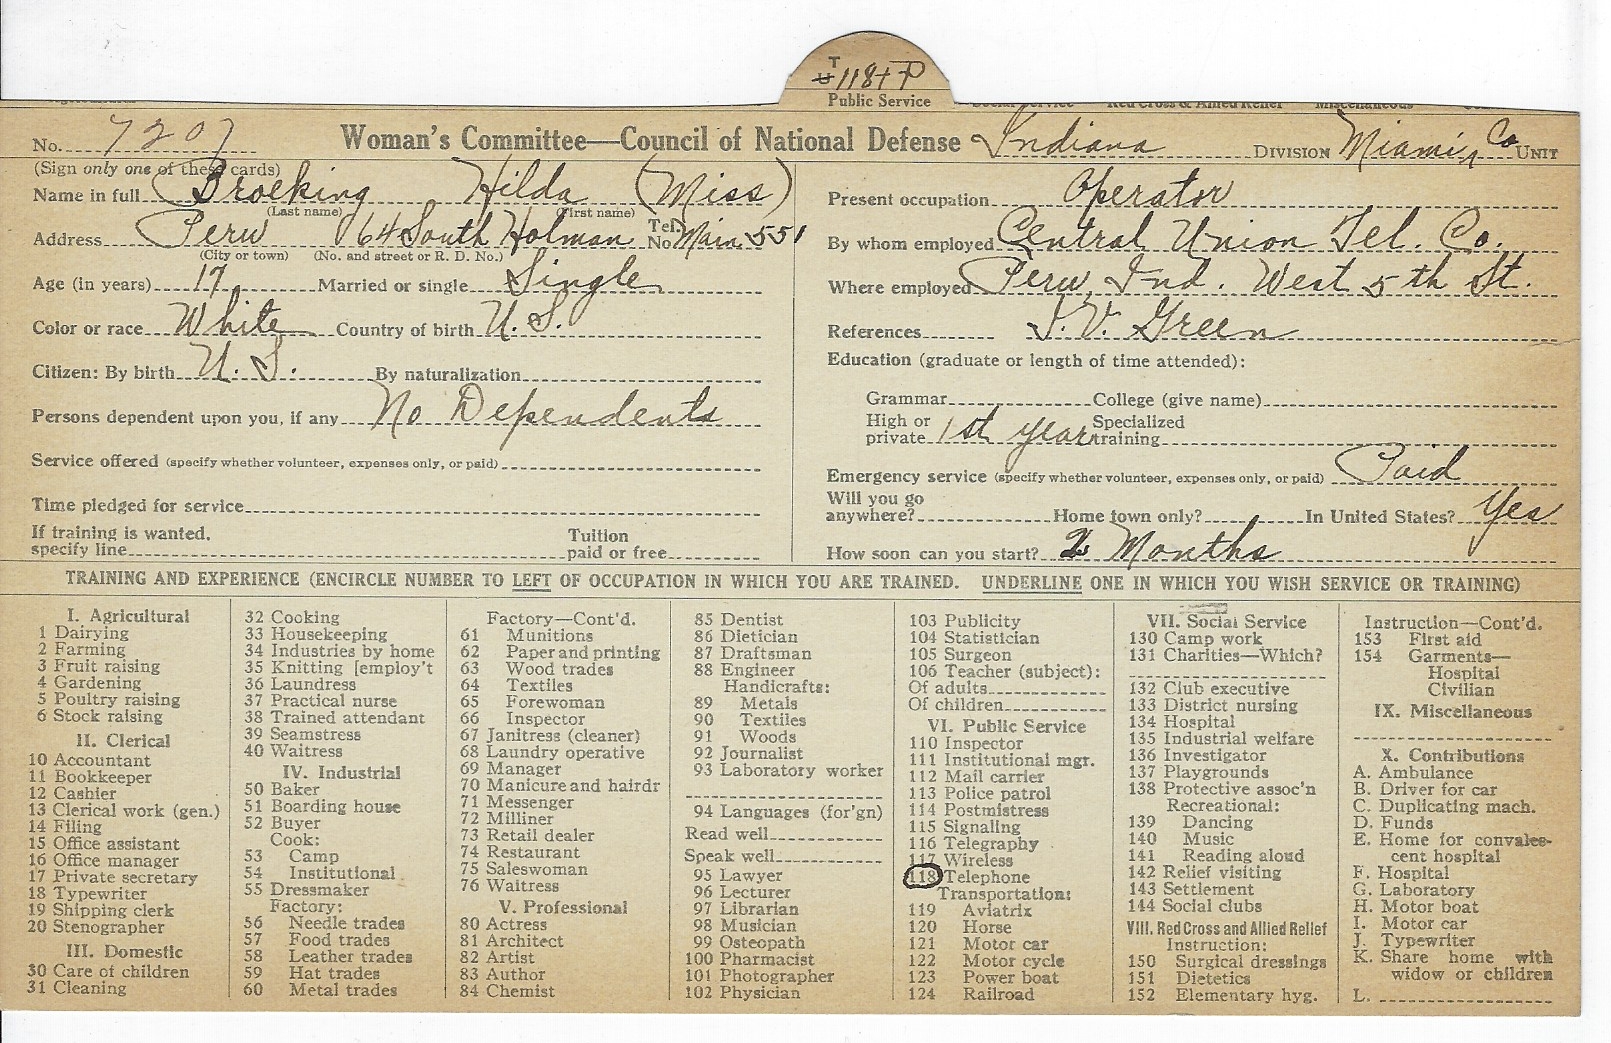 T
U 118+P
Public Service
No. 7207 Woman's Committee—Council of National Defense Indiana DIVISION Miami Co UNIT
(Sign only one of these cards)
Name in full Broeking Hilda (Miss)
(Last name) (First name)
Address Peru 64 South Holman Tel. No. Main 551
(City or town) (No. and street or R. D. No.)
Age (in years) 17 Married or single Single
Color or race White Country of birth U. S.
Citizen: By birth U. S. By naturalization
Persons dependent upon you, if any No Dependents
Service offered (specify whether volunteer, expenses only, or paid)
Time pledged for service
If training is wanted, specify line Tuition paid or free
Present occupation Operator
By whom employed Central Union Tel. Co.
Where employed Peru, Ind. West 5th St.
References J. V. Green
Education (graduate or length of time attended):
Grammar College (give name)
High or private 1st year Specialized training
Emergency service (specify whether volunteer, expenses only, or paid) Paid
Will you go anywhere? Home town only? In United States? Yes
How soon can you start? 2 Months
TRAINING AND EXPERIENCE (ENCIRCLE NUMBER TO LEFT OF OCCUPATION IN WHICH YOU ARE TRAINED. UNDERLINE ONE IN WHICH YOU WISH SERVICE OR TRAINING)
I. Agricultural
1 Dairying
2 Farming
3 Fruit raising
4 Gardening
5 Poultry raising
6 Stock raising
II. Clerical
10 Accountant
11 Bookkeeper
12 Cashier
13 Clerical work (gen.)
14 Filing
15 Office assistant
16 Office manager
17 Private secretary
18 Typewriter
19 Shipping clerk
20 Stenographer
III. Domestic
30 Care of children
31 Cleaning
32 Cooking
33 Housekeeping
34 Industries by home
35 Knitting [employ't
36 Laundress
37 Practical nurse
38 Trained attendant
39 Seamstress
40 Waitress
IV. Industrial
50 Baker
51 Boarding house
52 Buyer
Cook:
53 Camp
54 Institutional
55 Dressmaker
Factory:
56 Needle trades
57 Food trades
58 Leather trades
59 Hat trades
60 Metal trades
Factory—Cont'd.
61 Munitions
62 Paper and printing
63 Wood trades
64 Textiles
65 Forewoman
66 Inspector
67 Janitress (cleaner)
68 Laundry operative
69 Manager
70 Manicure and hairdr
71 Messenger
72 Milliner
73 Retail dealer
74 Restaurant
75 Saleswoman
76 Waitress
V. Professional
80 Actress
81 Architect
82 Artist
83 Author
84 Chemist
85 Dentist
86 Dietician
87 Draftsman
88 Engineer
Handicrafts:
89 Metals
90 Textiles
91 Woods
92 Journalist
93 Laboratory worker
94 Languages (for'gn)
Read well
Speak well
95 Lawyer
96 Lecturer
97 Librarian
98 Musician
99 Osteopath
100 Pharmacist
101 Photographer
102 Physician
103 Publicity
104 Statistician
105 Surgeon
106 Teacher (subject):
Of adults
Of children
VI. Public Service
110 Inspector
111 Institutional mgr.
112 Mail carrier
113 Police patrol
114 Postmistress
115 Signaling
116 Telegraphy
117 Wireless
118 Telephone
Transportation:
119 Aviatrix
120 Horse
121 Motor car
122 Motor cycle
123 Power boat
124 Railroad
VII. Social Service
130 Camp work
131 Charities—Which?
132 Club executive
133 District nursing
134 Hospital
135 Industrial welfare
136 Investigator
137 Playgrounds
138 Protective assoc'n
Recreational:
139 Dancing
140 Music
141 Reading aloud
142 Relief visiting
143 Settlement
144 Social clubs
VIII. Red Cross and Allied Relief
Instruction:
150 Surgical dressings
151 Dietetics
152 Elementary hyg.
Instruction—Cont'd.
153 First aid
154 Garments—
Hospital
Civilian
IX. Miscellaneous
X. Contributions
A. Ambulance
B. Driver for car
C. Duplicating mach.
D. Funds
E. Home for convales-
cent hospital
F. Hospital
G. Laboratory
H. Motor boat
I. Motor car
J. Typewriter
K. Share home with
widow or children
L.